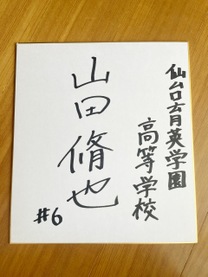 仙台育英学園
高等学校
山田脩也
#6